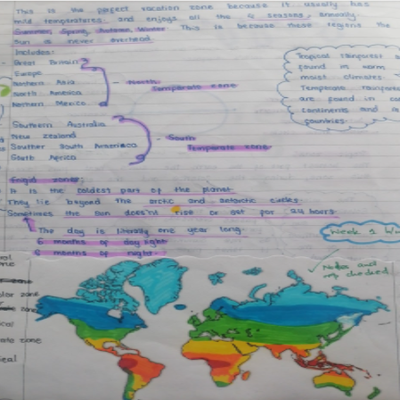 This is the perfect vacation zone because it usually has
mild temperatures and enjoys all the 4 seasons annually.
Summer, Spring, Autumn, Winter This is because these regions the
sun is never overhead.
Includes:
Great Britain
Europe
Northern Asia
North America
Northern Mexico
North
Temperate zone
Southern Australia
New zealand
Souther South America
South Africa
South
Temperate zone
Tropical rainforest
found in warm
moist climates
Temperate rainforest
are found in
continents and
countries
Frigid zones
It is the coldest part of the planet.
They lie beyond the arctic and antarctic circles.
Sometimes the sun doesn't rise or set for 24 hours
The day is literally one year long.
6 months of day light
6 months of night
Week 2
Notes
checked
zone
zone